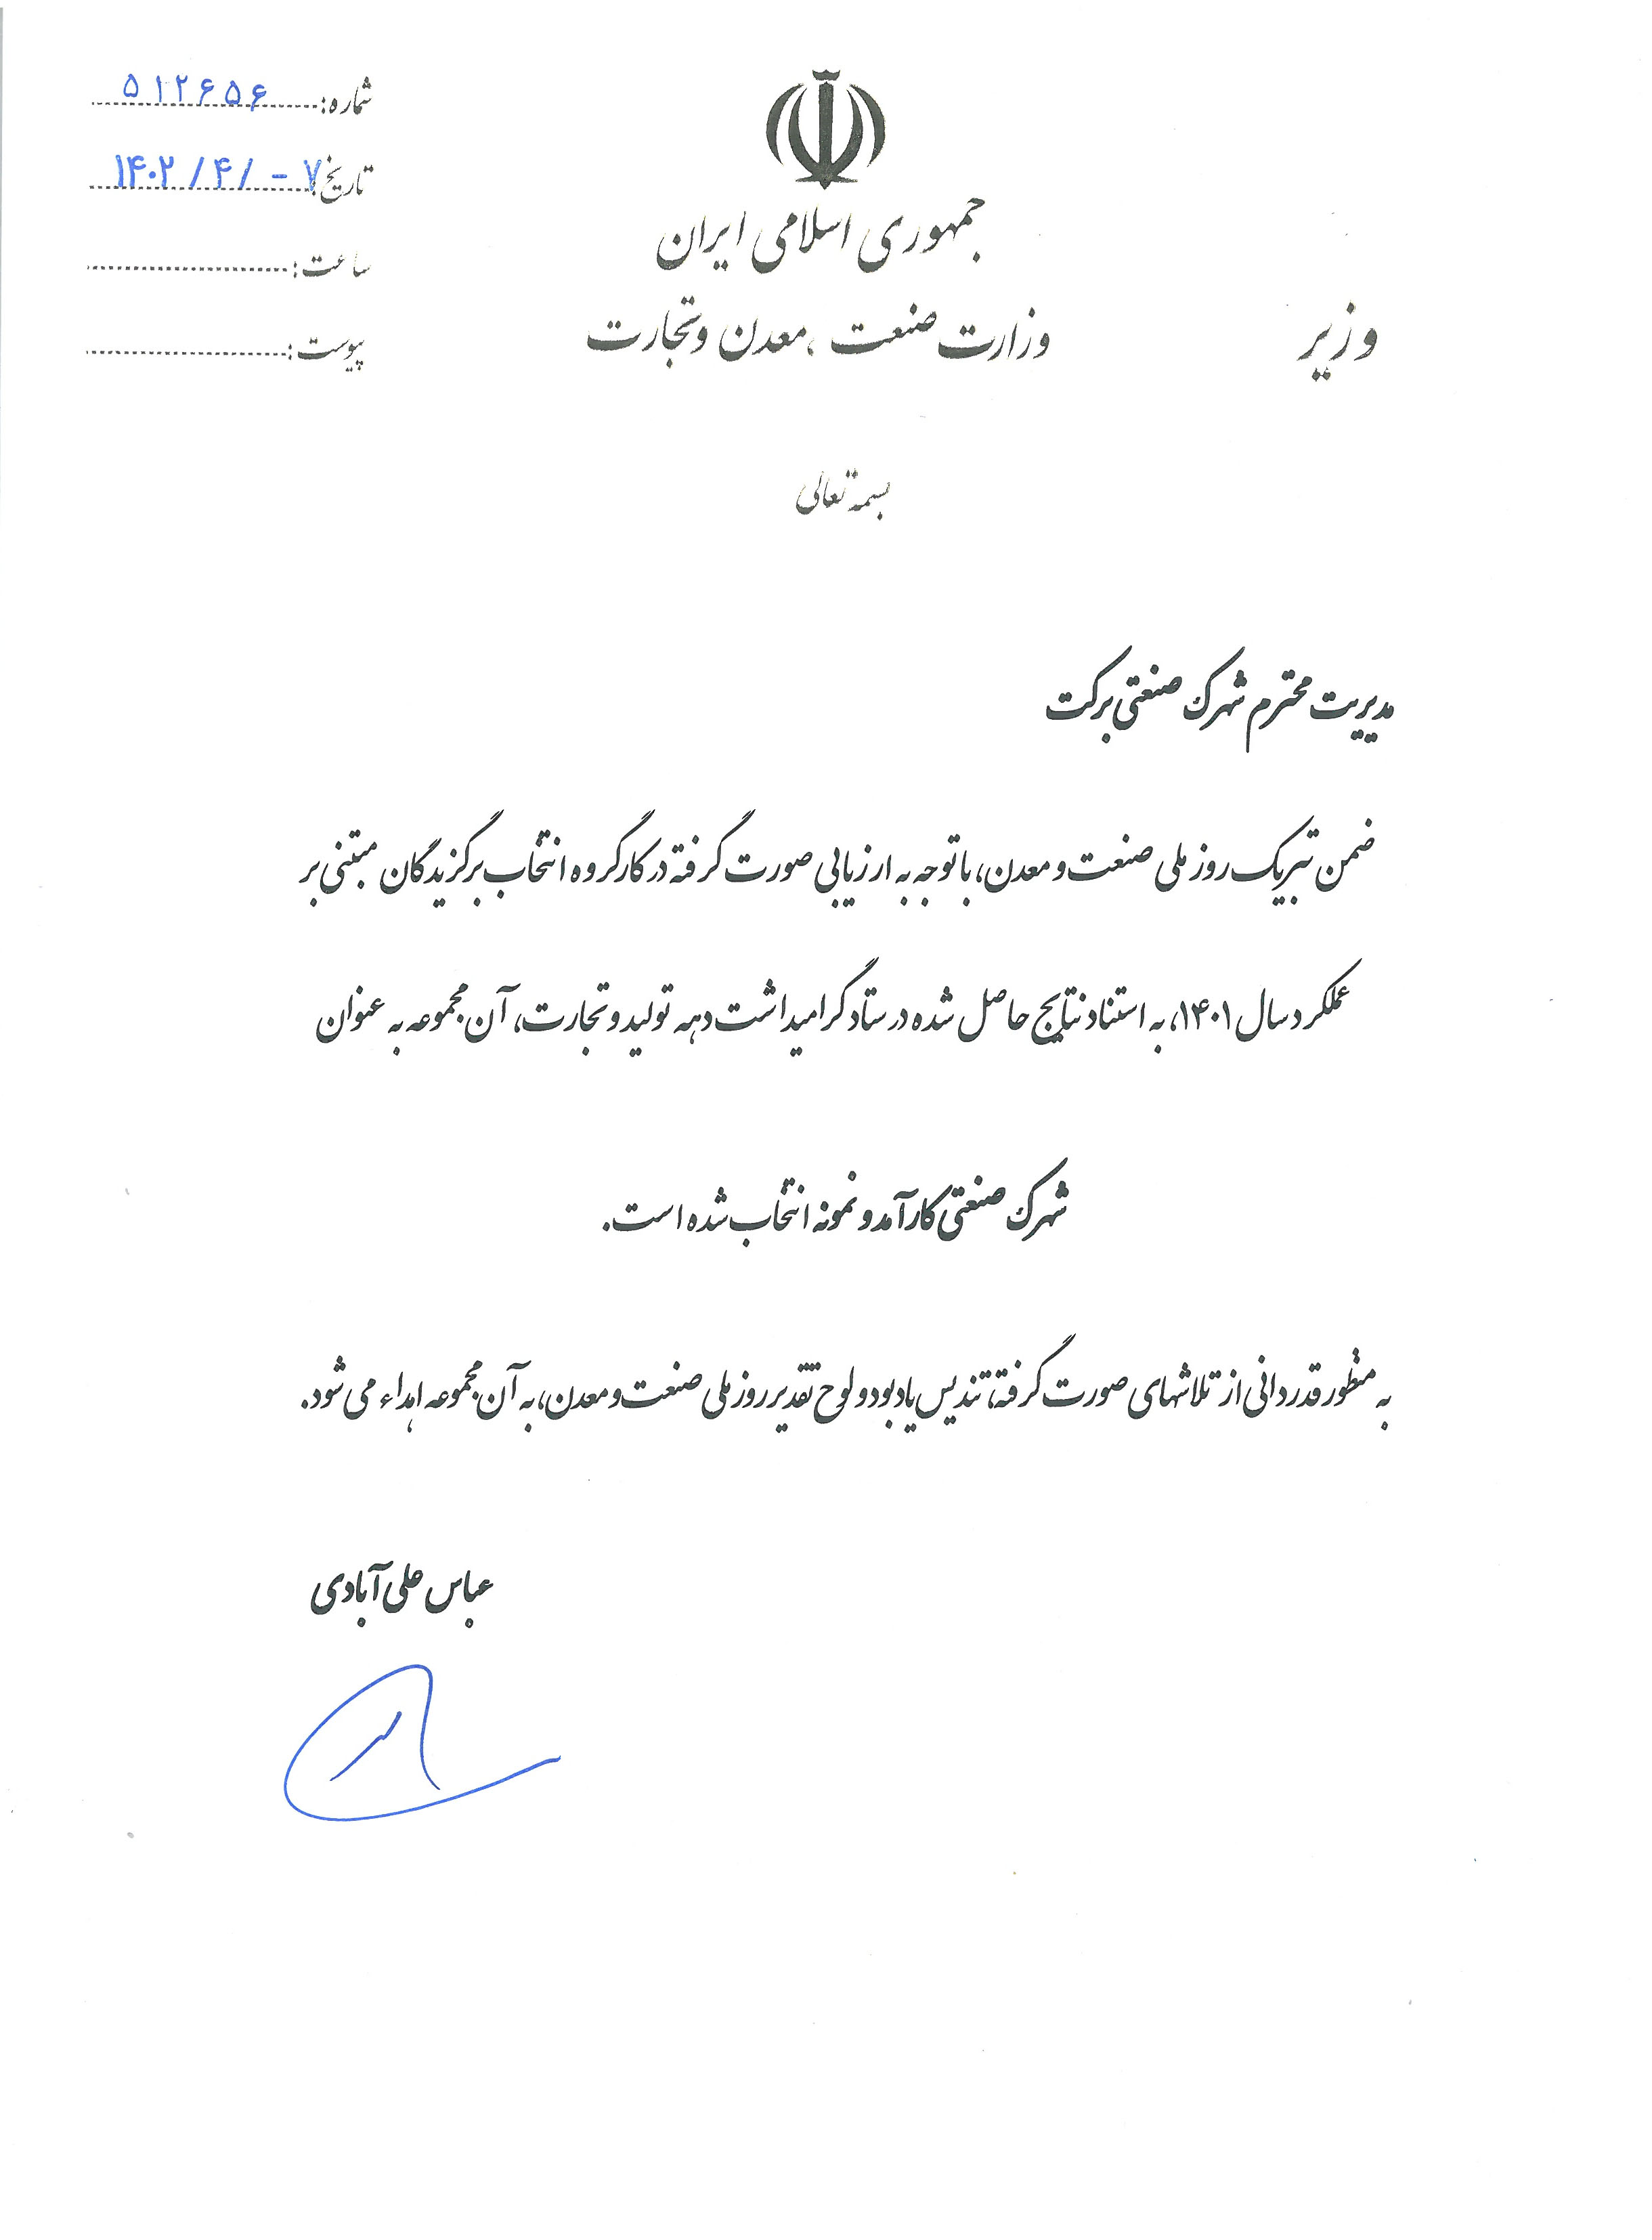 شماره: ۵۱۲۶۵۶
تاریخ: ۱۴۰۲/۴/-۷
ساعت:
پیوست:
جمهوری اسلامی ایران
وزارت صنعت، معدن و تجارت
وزیر
بسمه تعالی
مدیریت محترم شهرک صنعتی برکت
ضمن تبریک روز ملی صنعت و معدن، با توجه به ارزیابی صورت گرفته در کارگروه انتخاب برگزیدگان مبتنی بر
عملکرد سال ۱۴۰۱، به استناد نتایج حاصل شده در ستاد گرامیداشت دهه تولید و تجارت، آن مجموعه به عنوان
شهرک صنعتی کارآمد و نمونه انتخاب شده است.
به منظور قدردانی از تلاشهای صورت گرفته، تندیس یادبود و لوح تقدیر روز ملی صنعت و معدن، به آن مجموعه اهداء می شود.
عباس علی آبادی